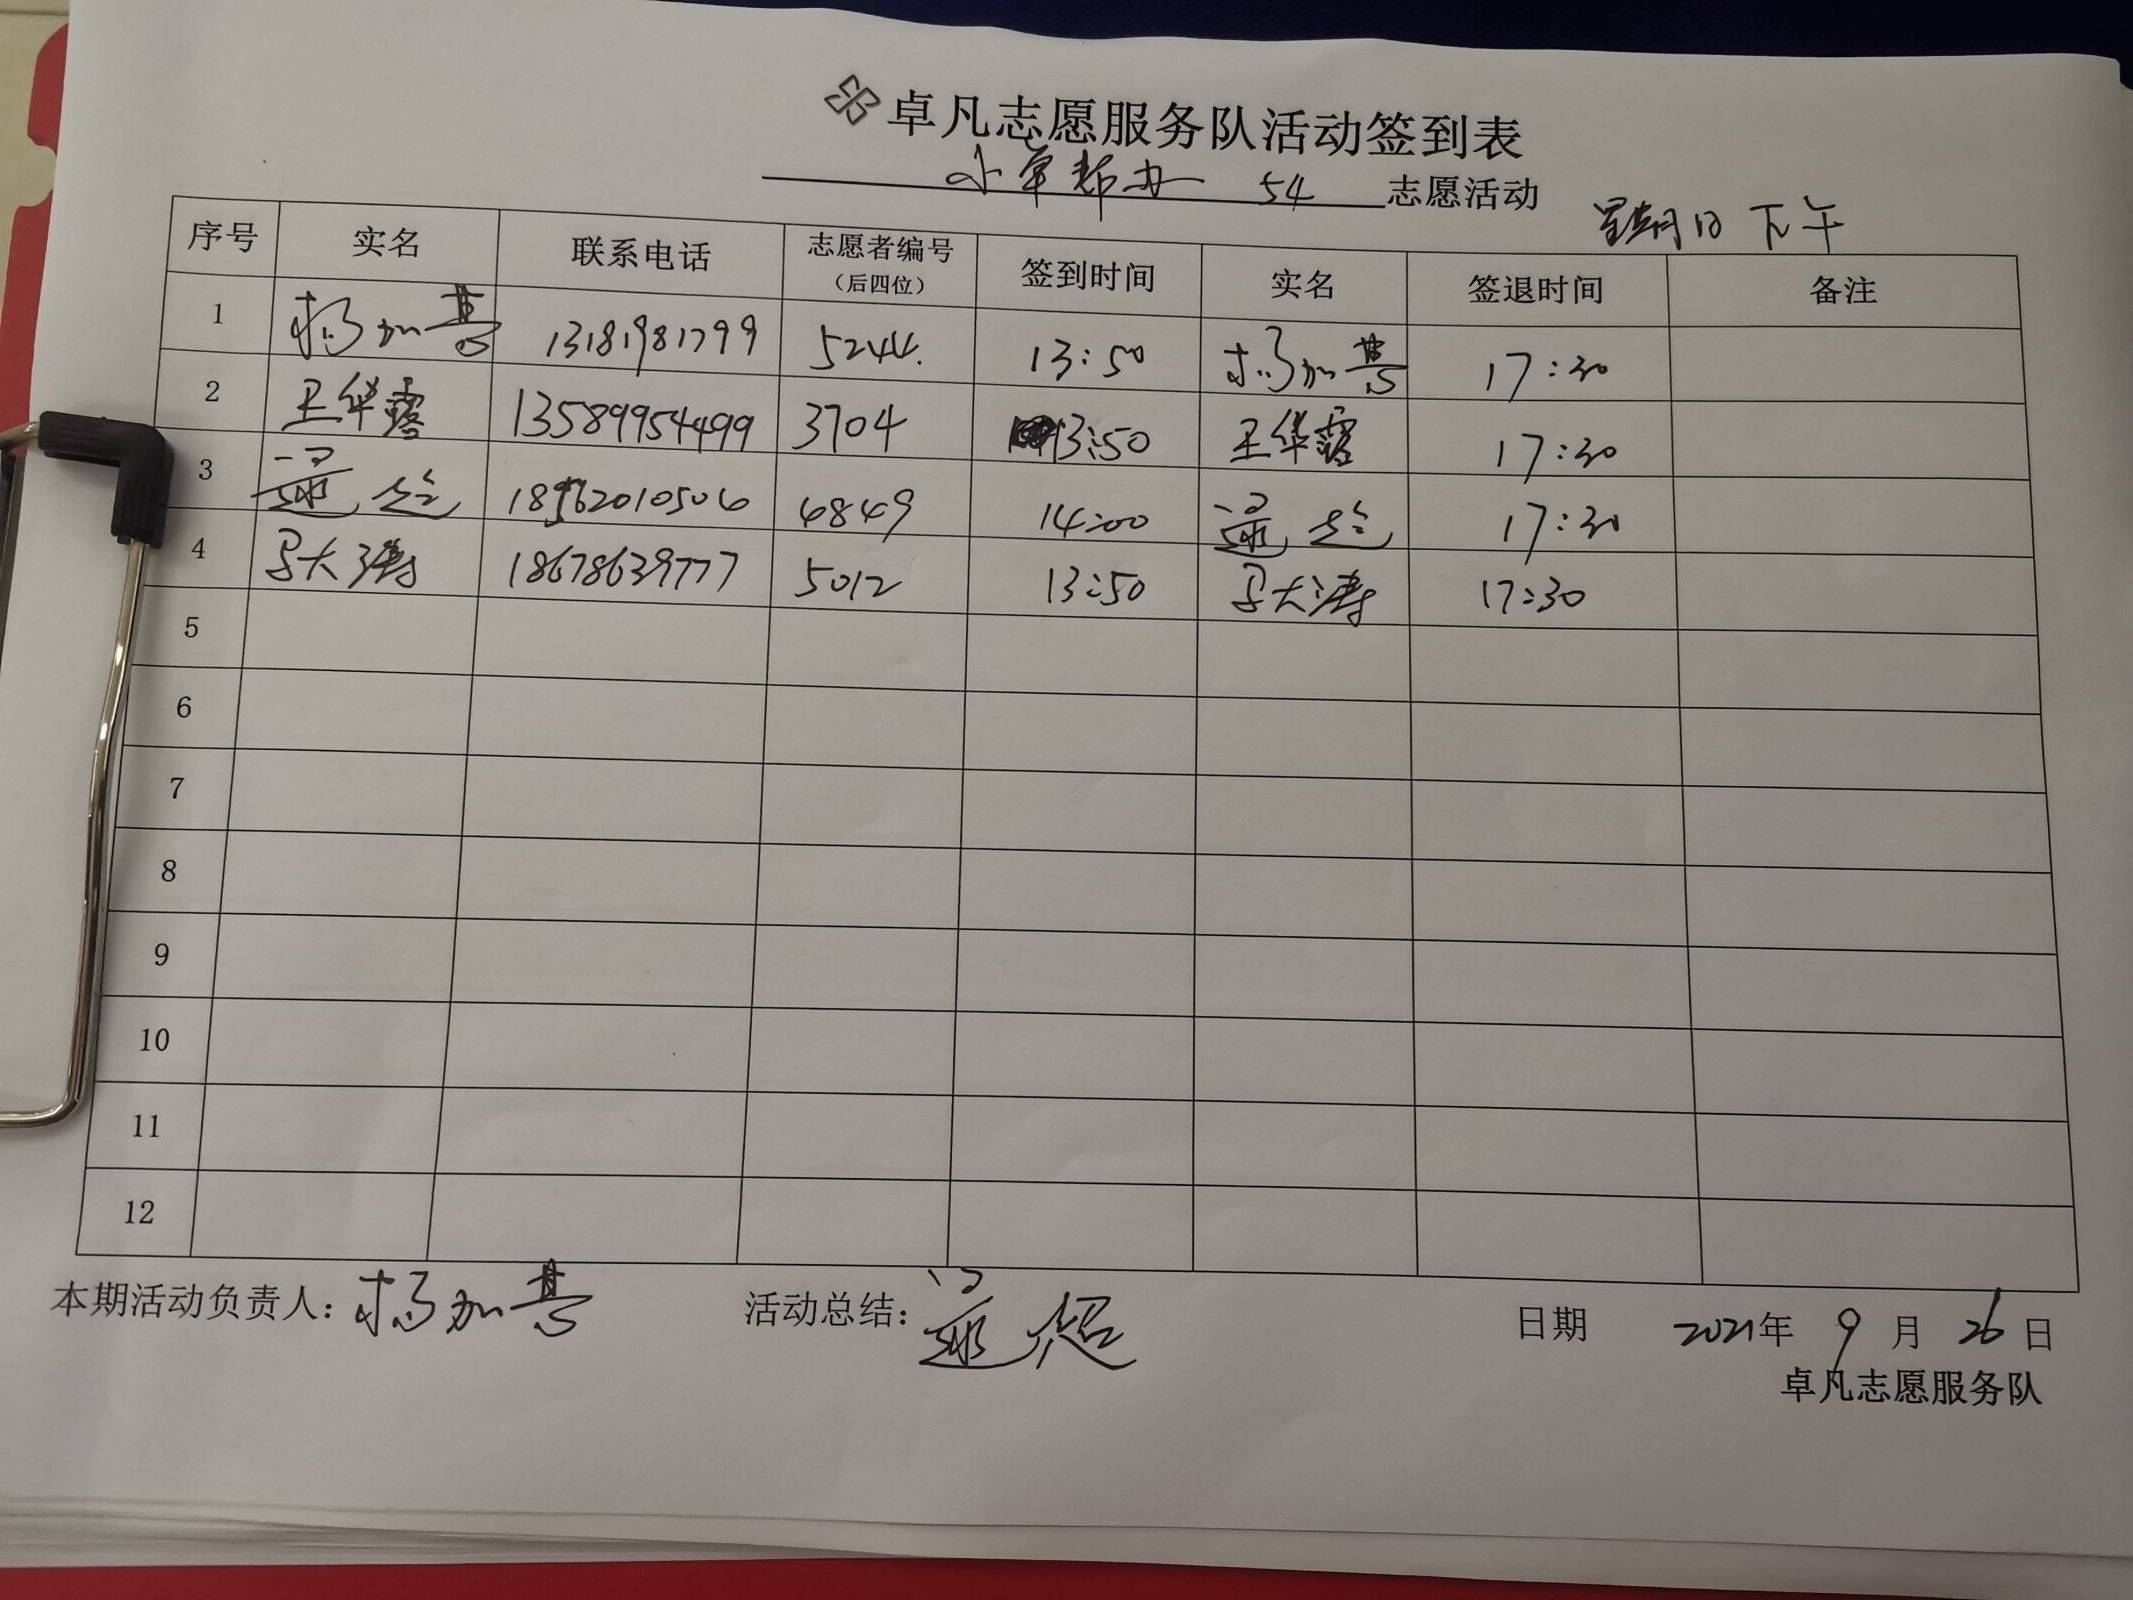 卓凡志愿服务队活动签到表
小卓帮办 54 志愿活动 星期日 下午
序号 实名 联系电话 志愿者编号（后四位） 签到时间 实名 签退时间 备注
1 杨加喜 13181981799 5244. 13:50 杨加喜 17:30
2 王华露 13589954499 3704 13:50 王华露 17:30
3 逯超 18562010506 6849 14:00 逯超 17:30
4 马大涛 18678639777 5012 13:50 马大涛 17:30
5
6
7
8
9
10
11
12
本期活动负责人：杨加喜 活动总结：逯超 日期 2021年 9 月 26 日
卓凡志愿服务队